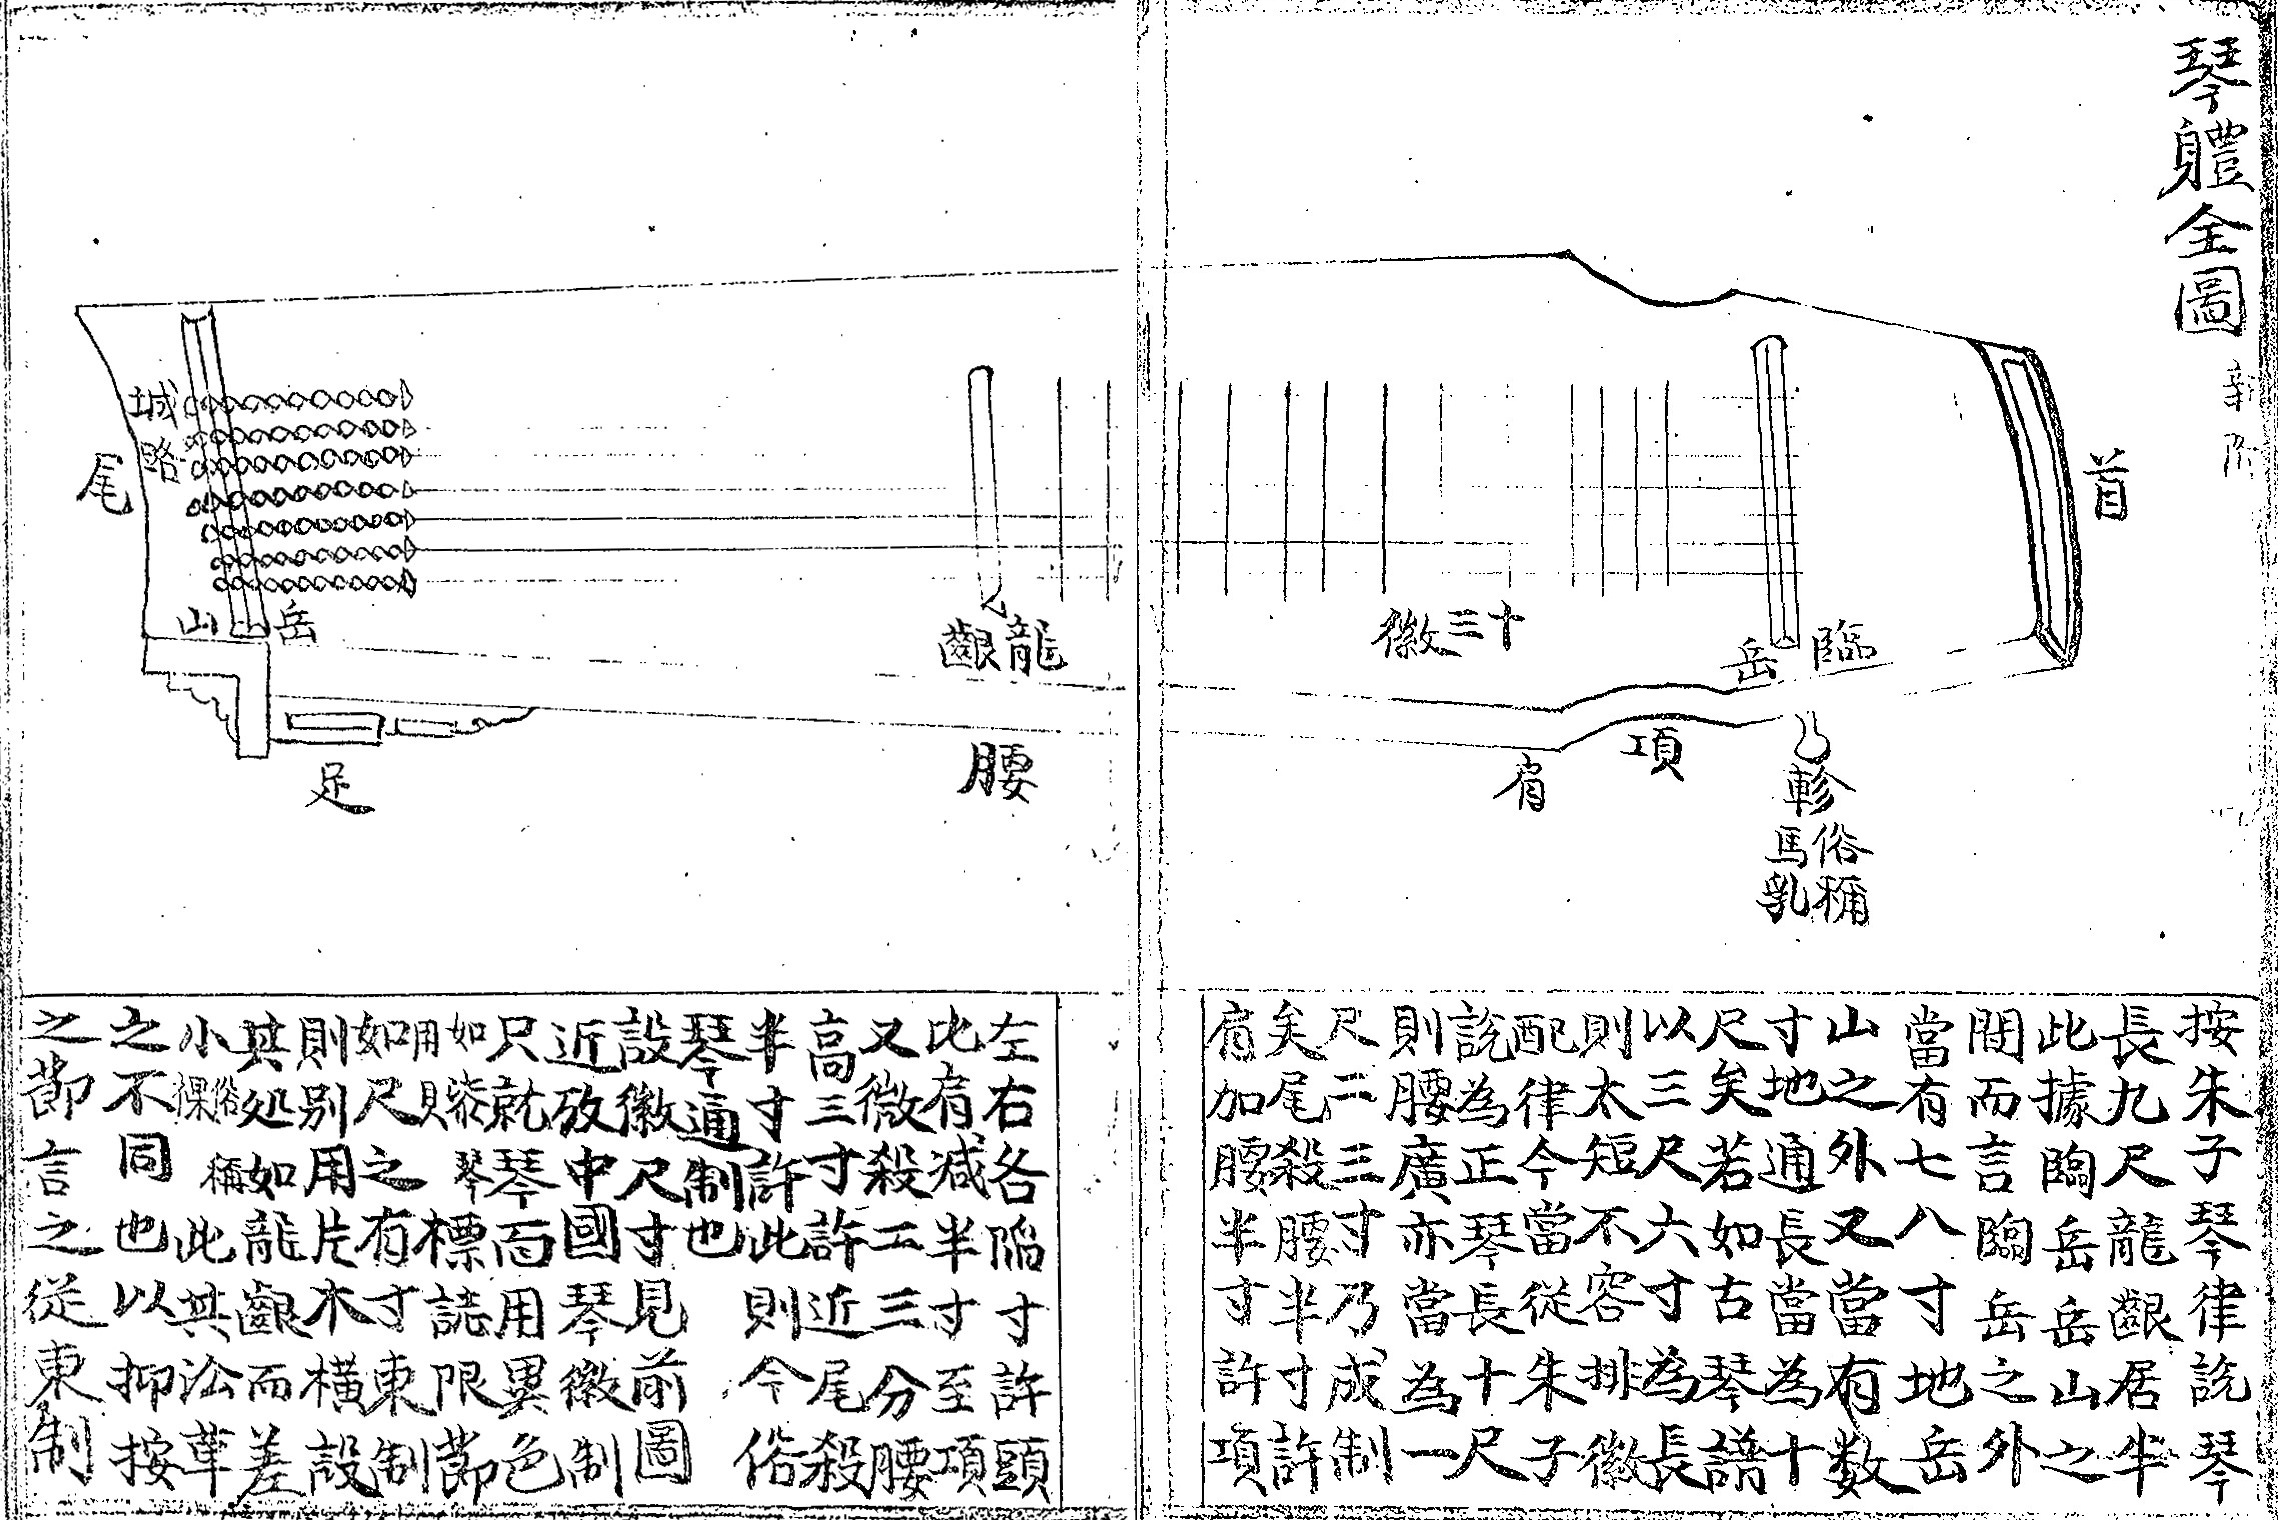 琴軆全圖
首
臨岳
軫
俗稱
馬乳
項
肩
十三徽
龍齦
腰
岳山
城路
尾
足
按朱子琴律説琴
長九尺龍齦居半
此據臨岳岳山之
間而言臨岳之外
當有七八寸地岳
山之外又當有数
寸地通長當為十
尺矣若如古琴譜
以三尺六寸為長
則太短不容排徽
配律今當從朱子
説為正琴長十尺
則腰廣亦當為一
尺二三寸乃成制
矣尾殺腰半寸許
肩加腰半寸許項
左右各陷寸許頭
比肩减半寸至項
又微殺二三分腰
高三寸許近尾殺
半寸許此則今俗
琴通制也
設徽尺寸見前圖
近攷中國琴徽制
只就琴面用異色
如漆琴用貝標誌限節
如尺之有寸東制
則别用片木横設
其処如龍齦而差
小俗稱裸此其法華
之不同也以抑按
之節言之從東制